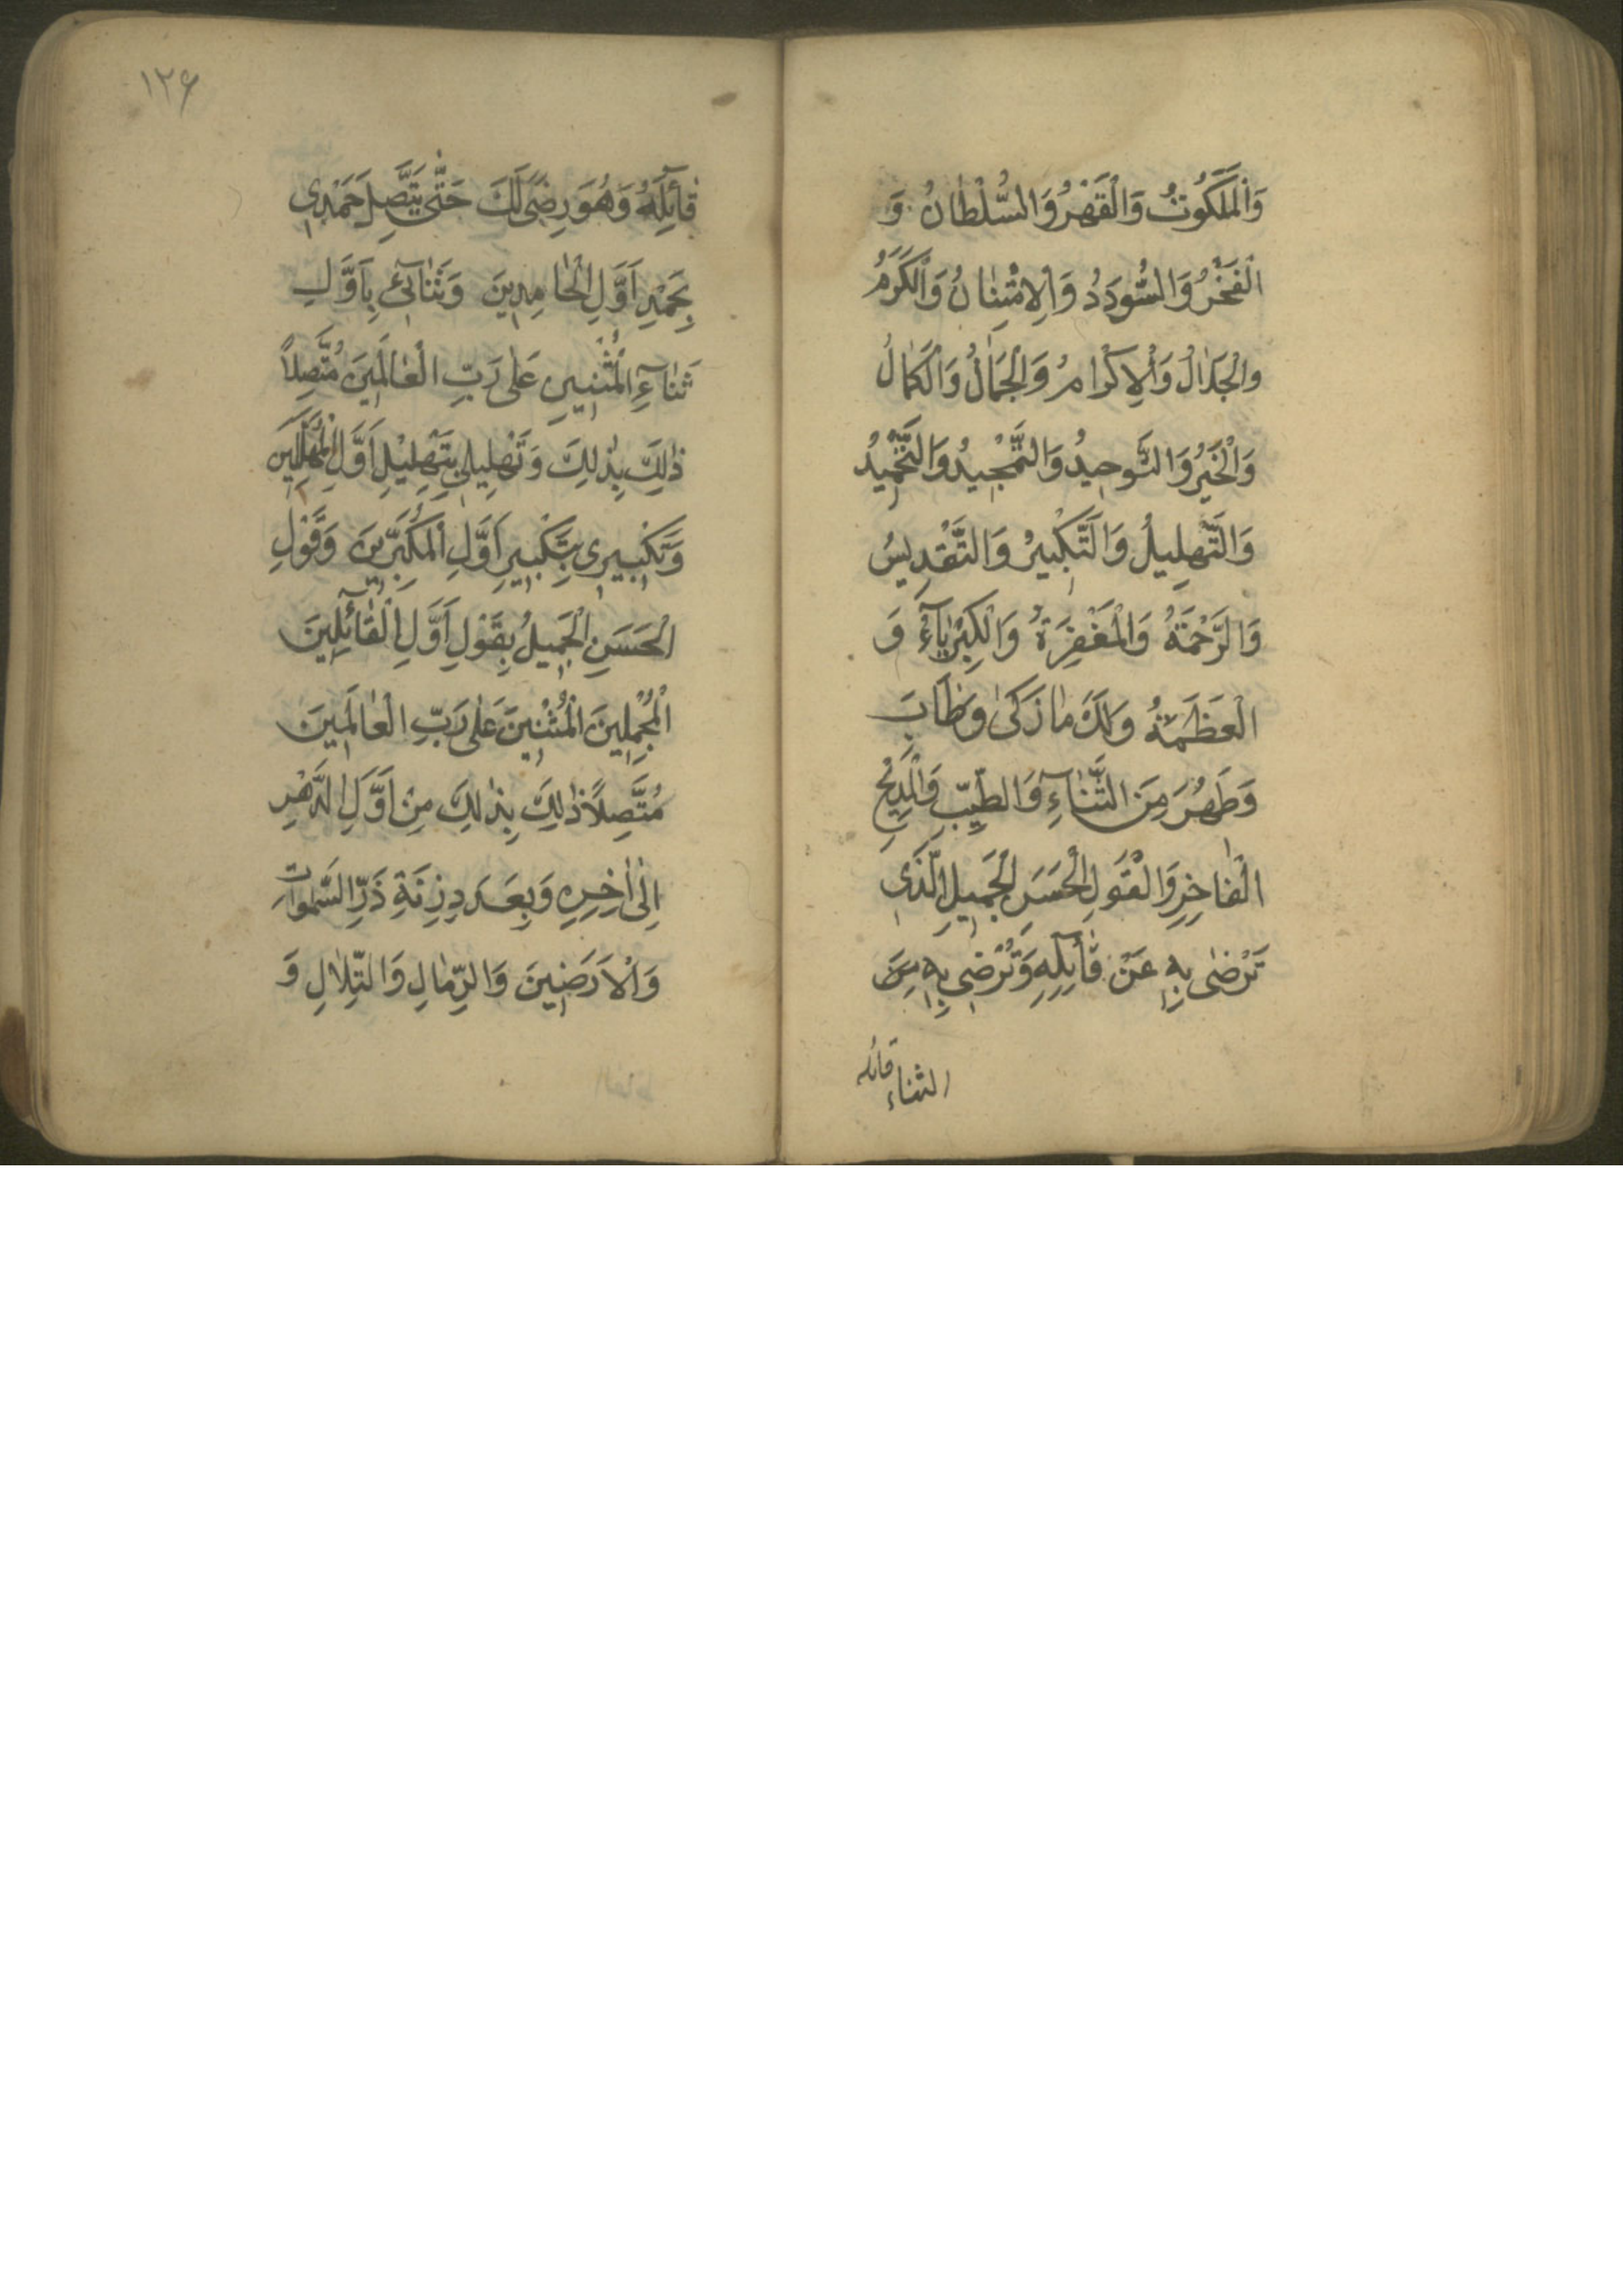 وَالْمَلَكُوتُ وَالْقَهْرُ وَالسُّلْطٰانُ وَ
الْفَخْرُ وَالسُّودَدُ وَالِامْتِنٰانُ وَالْكَرَمُ
والْجَلٰالُ وَالْاِكْرٰامُ وَالْجَمٰالُ وَالْكَمٰالُ
وَالْخَيْرُ وَالتَّوحيدُ وَالتَّمْجيدُ وَالتَّحْميدُ
وَالتَّهْلِيلُ وَالتَّكْبيرُ وَالتَّقْدِيسُ
وَالرَّحْمَةُ وَالْمَغْفِرَةُ وَالْكِبْرِيٰآءُ وَ
الْعَظَمَةُ وَلَكَ مٰا زَكىٰ وَطٰابَ
وَطَهُرَ مِنَ الثَّنٰآءِ وَالطَّيِّبِ وَالْمَدِيْحِ
الْفٰاخِرِ وَالْقَولِ الْحَسَنِ الْجَمِيلِ الَّذي
تَرْضىٰ بِهِ عَنْ قٰآئِلِهِ وَتُرْضي بِهِ مَنْ
الثناء قائله
١٢۶
قٰآئِلَهُ وَهُوَ رِضًى لَكَ حَتّٰى يَتَّصِلَ حَمْدِي
بِحَمْدِ اَوَّلِ الْحٰامِدِينَ وَثَنٰآئي بِاَوَّلِ
ثَنٰآءِ الْمُثْنِينَ عَلٰى رَبِّ الْعٰالَمِينَ مُتَّصِلاً
ذٰلِكَ بِذٰلِكَ وَتَهْلِيلي بِتَهْلِيْلِ اَوَّلِ الْمُهَلِّلِينَ
وَتَكْبِيرِي بِتَكْبِيرِ اَوَّلِ الْمُكَبِّرِينَ وَقَوْلِ
الْحَسَنِ الْجَمِيلُ بِقَوْلِ اَوَّلِ الْقٰآئِلِينَ
الْمُجْمِلِينَ الْمُثْنِينَ عَلٰى رَبِّ الْعٰالَمِينَ
مُتَّصِلاً ذٰلِكَ بِذٰلِكَ مِنْ اَوَّلِ الدَّهْرِ
اِلىٰ اٰخِرِهِ وَبِعَدَدِ زِنَةِ ذَرِّ السَّمٰواتِ
وَالْاَرَضِينَ وَالرِّمٰالِ وَالتِّلٰالِ وَ